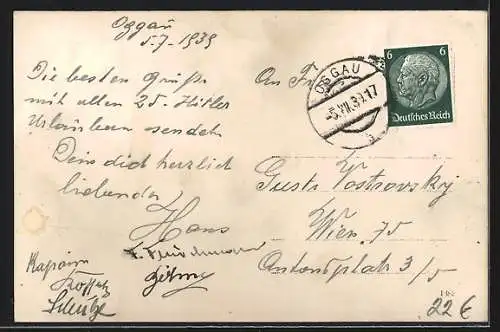 Oggau
5.7.1939
Die besten Grüße
mit allen 25 Hitler
Urlaubern sendet
Dein dich herzlich
liebender
Hans
An Fr
OGGAU
-5.VII.39.17
6 6
Deutsches Reich
Gustr Vostrovsky
Wien 75
Antonsplatz 3/5
22 €